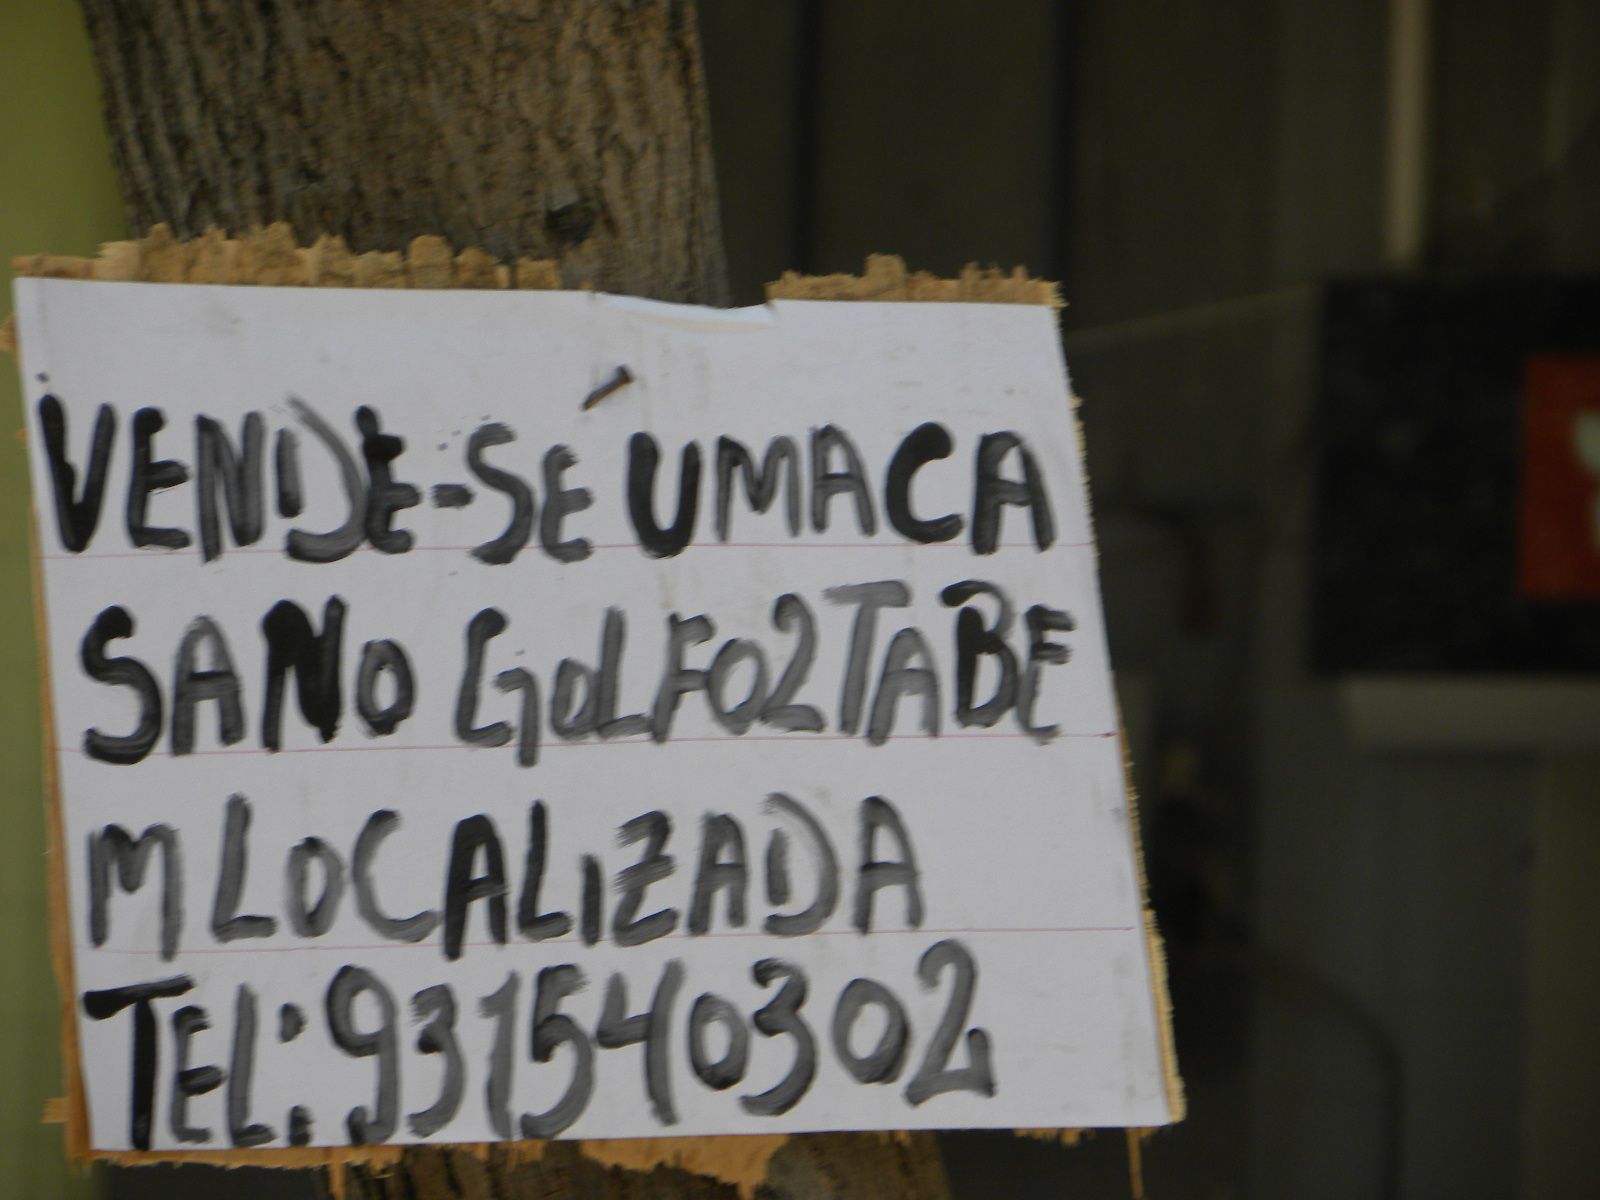 VENDE-SE UMA CA
SA NO GOLFO 2 TABE
M LOCALIZADA
TEL: 931540302